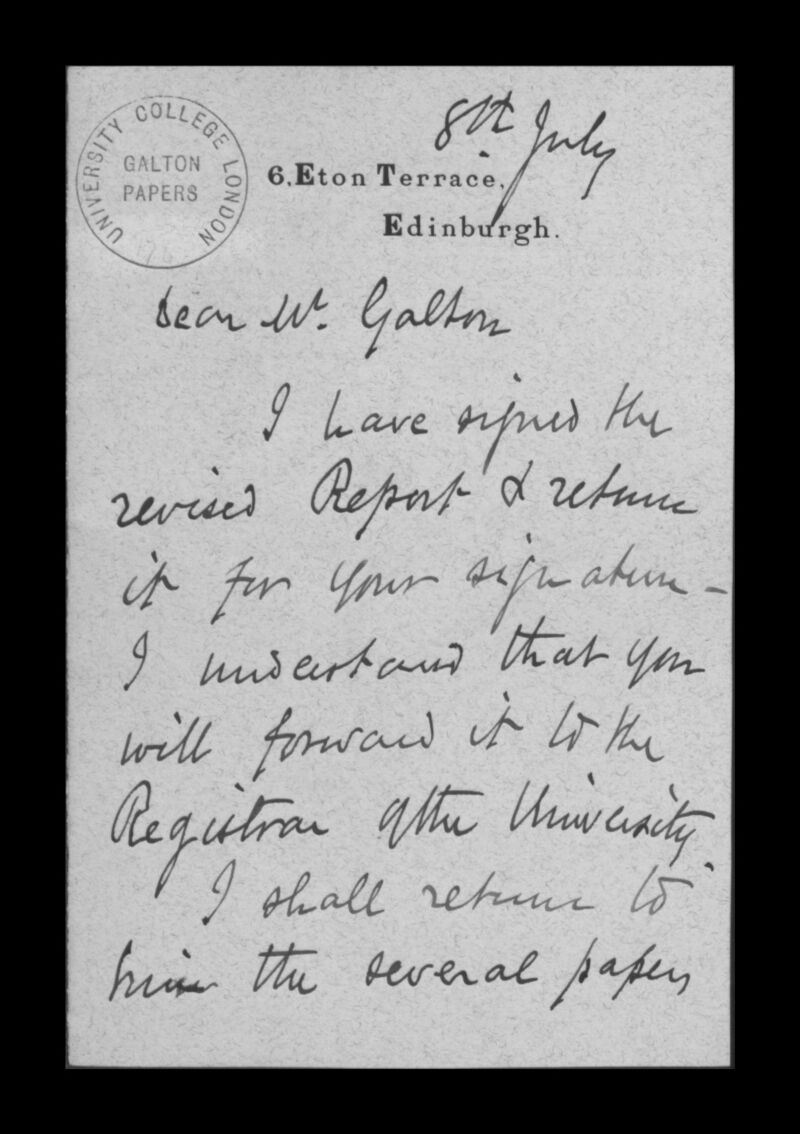 UNIVERSITY COLLEGE LONDON
GALTON
PAPERS
8th July
6, Eton Terrace,
Edinburgh.
Dear Mr. Galton
I have signed the
revised Report & return
it for your signature -
I understand that you
will forward it to the
Registrar of the University.
I shall return to
him the several papers